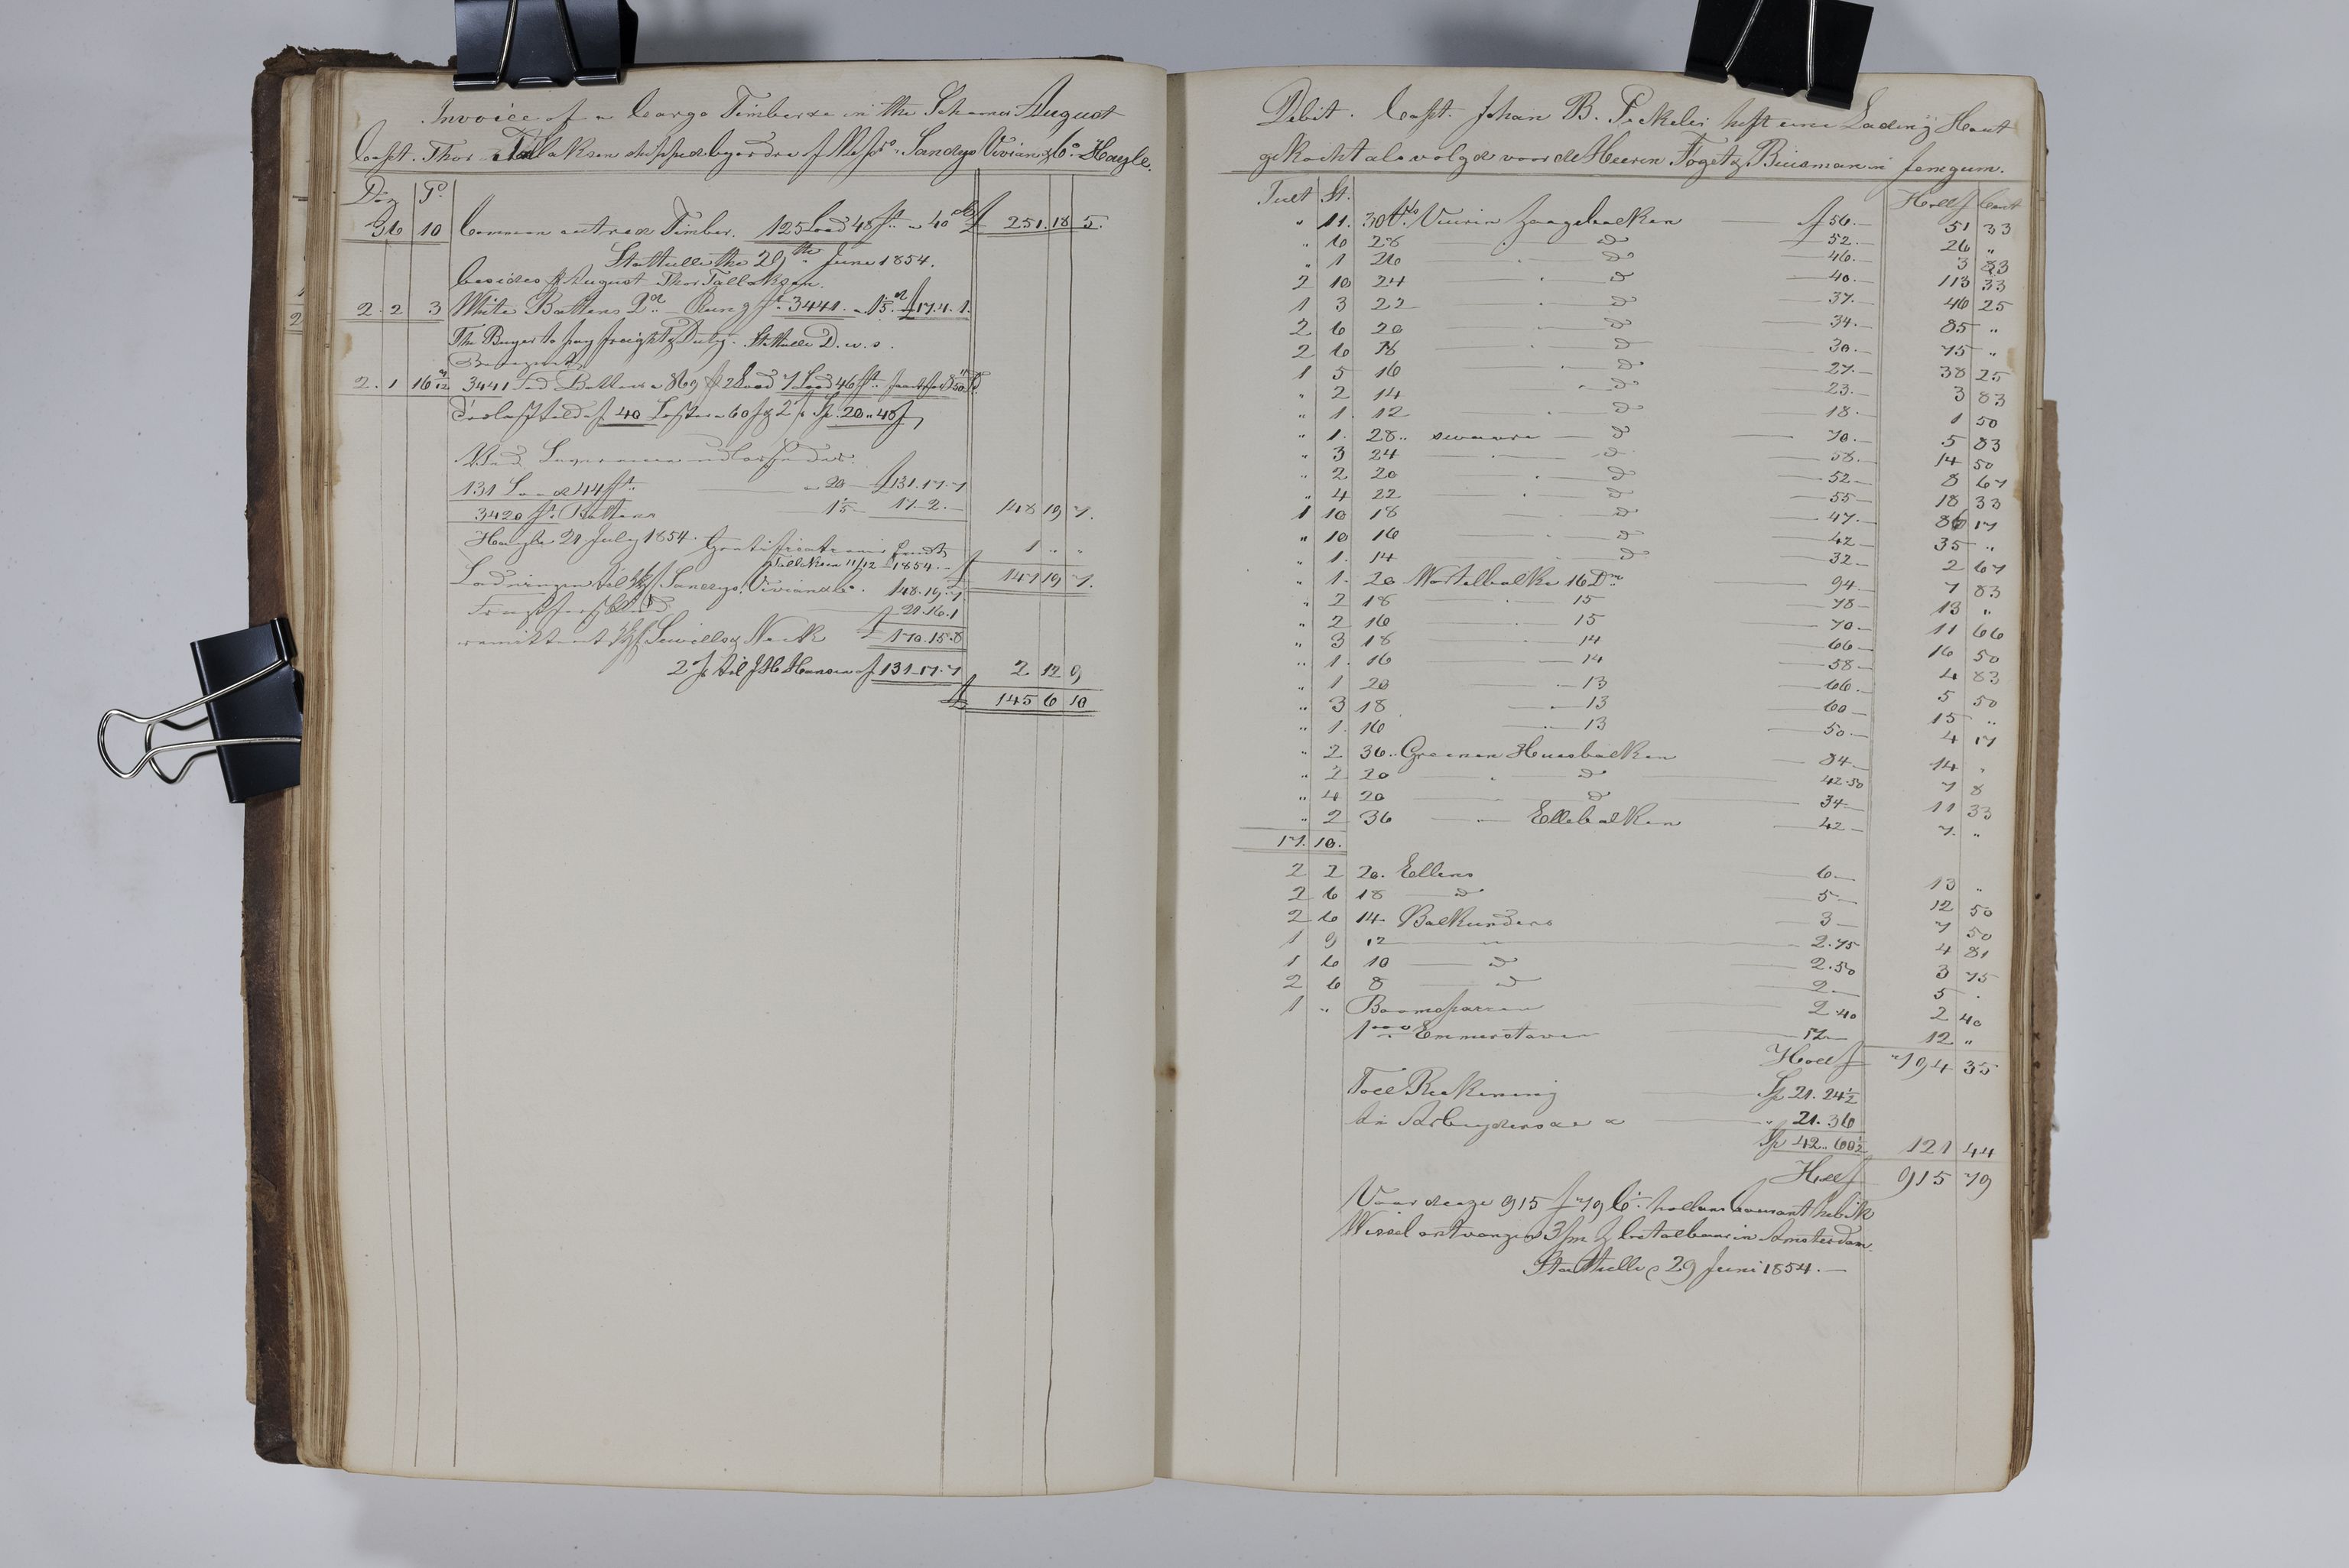 Invoice of a Cargo Timber &c in the Schoner August
Capt. Thor Tallaksen shipped by order of Mess.rs Sandys Vivian & Co. Hayle.
Doz P.
36 10 Common cut red Timber. 125 Load 48 ft. a 40 sh £ 251. 18 5.
Stathelle the 29th June 1854.
besides p August Thor Tallaksen.
2. 2 3 White Battens 2d. Rung ft. 3441. a 15. £ 17. 4. 1.
The Buyer to pay freight & Duty. Stathelle D. u. s.
2. 1 16 3441 Battens 869 2 Load 7 Load 46 ft.
40 Lester a 60 20 " 48
Ved
131 Load 44 ft. — a 20 — £ 131. 17. 7
3420 ft. Battens — 15 — 17. 2. — 148 19 7.
Hayle 21 July 1854. 1 " "
Tallaksen 11/12 1854. — £ 147 19 7.
Ladningen til Sandys Vivian & Co. 148. 19. 7
21. 16. 1
remittert Neck £ 170. 15. 8
2 p til J H Hansen af 131. 17. 7 2 12 9
£ 145 6 10
Debit. Capt. Johan B. Pekeler heft eene Lading Hout
gekocht als volgd voor de Heeren Foget & Buisman in Jemgum.
Tult St. Holl f Cent
" 11. 30 Vuuren Zaagebalken — f 56. — 51 33
" 6 28 — d — 52. — 26 "
" 1 26 — d — 46. — 3 83
2 10 24 — d — 40. — 113 33
1 3 22 — d — 37. — 46 25
2 6 20 — d — 34. — 85 "
2 6 18 — d — 30. — 75 "
1 5 16 — d — 27. — 38 25
" 2 14 — d — 23. — 3 83
" 1. 12 — d — 18. — 1 50
" 1. 28 " swaare — d — 70. — 5 83
" 3 24 — d — 58. — 14 50
" 2 20 — d — 52 — 8 67
" 4 22 — d — 55 — 18 33
1 10 18 — d — 47. — 86 17
" 10 16 — d — 42 — 35 "
" 1. 14 — d — 32 — 2 67
" 1. 20 Wortelbalke 16 Dm — 94 — 7 83
" 2 18 — 15 — 78 — 13 "
" 2 16 — 15 — 70 — 11 66
" 3 18 — 14 — 66 — 16 50
" 1. 16 — 14 — 58 — 4 83
" 1 20 — 13 — 66. — 5 50
" 3 18 — 13 — 60 — 15 "
" 1. 16 — 13 — 50. — 4 17
" 2 36 " Greenen Huusbalken — 84 — 14 "
" 2 20 — d — 42.50 7 8
" 4 20 — d — 34 — 11 33
" 2 36 — Ellebalken — 42 — 7. "
17. 10.
2 2 20. Ellens 6 — 13 "
2 6 18 — d 5 — 12 50
2 6 14 Balkunders 3 — 7 50
1 9 12 — " — 2.75 4 81
1 6 10 — d — 2.50 3 75
2 6 8 — d — 2 — 5 .
1 " Boomsparren — 2 40 2 40
1000 Emmerstaven — 12 — 12 "
Holl f 794 35
Toll Rekening — Sp 21. 24½
An Arbeyders — " 21. 36
Sp 42. 60½ 121 44
Holl f 915 79
Voor deeze 915 f 79 C. hollans Courant heb ik
Wissel ontvangen 3/m betalbaar in Amsterdam.
Stathelle 29 Juni 1854. —